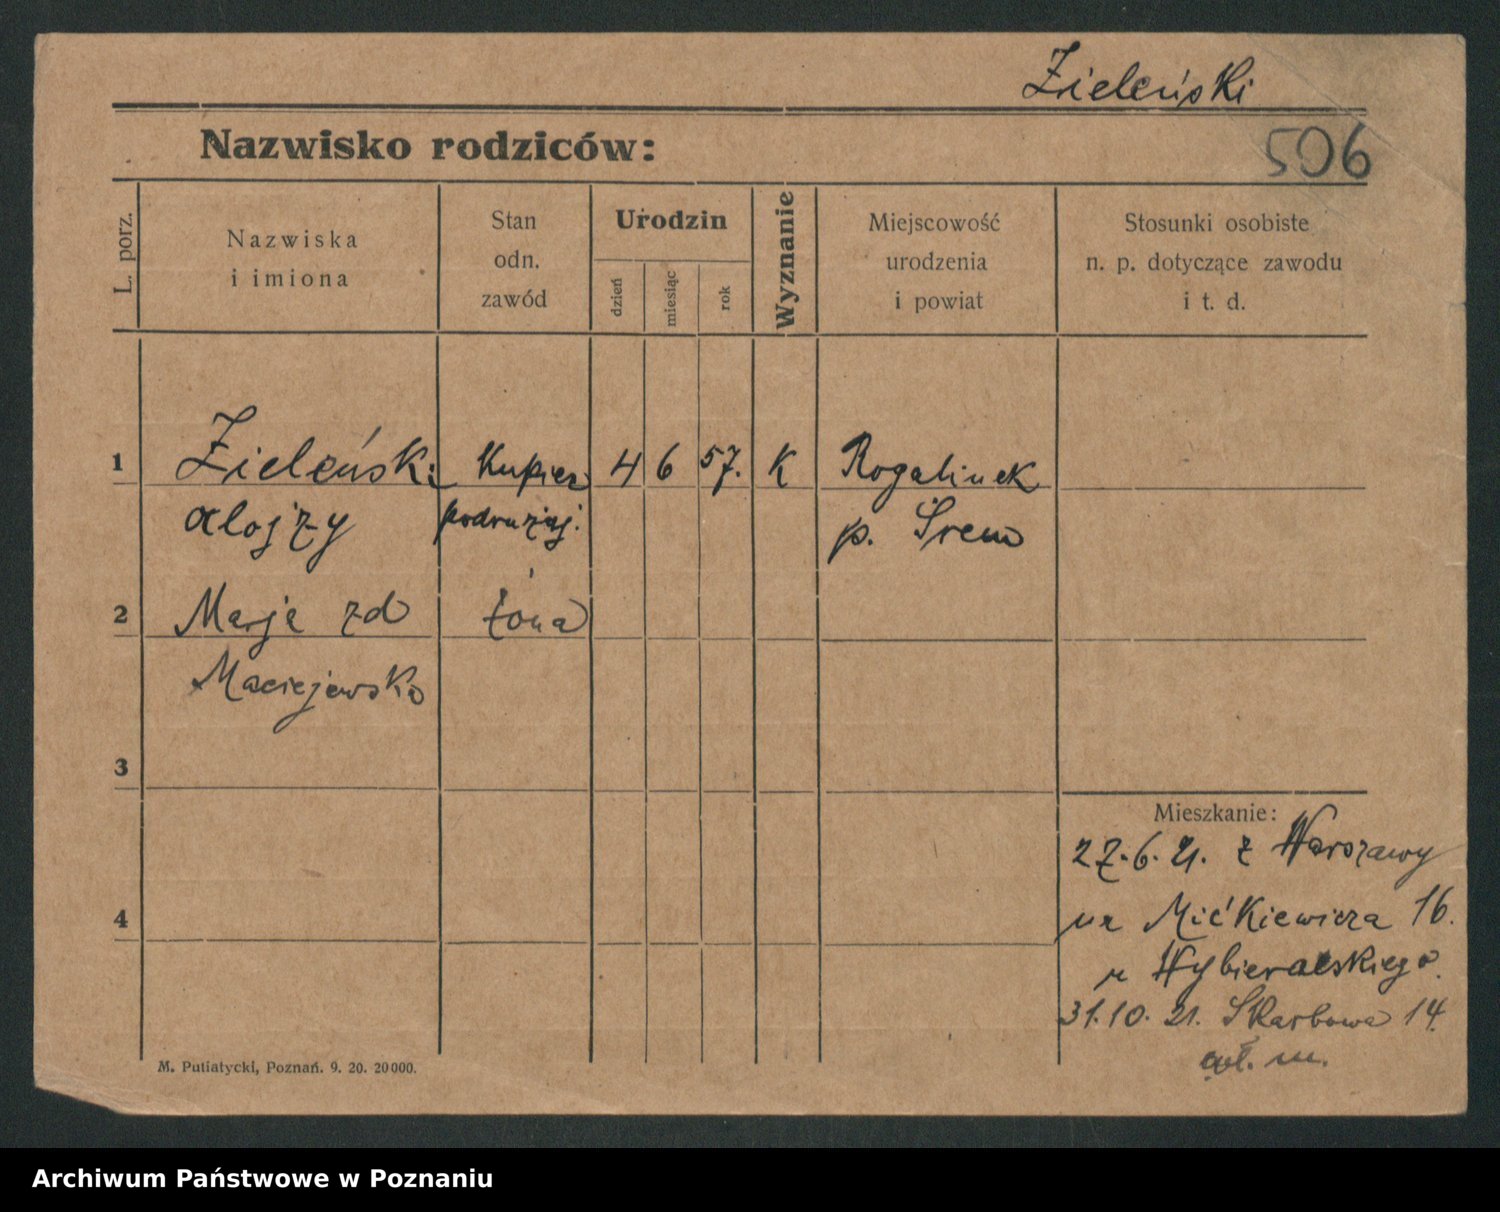 Zieleński
506
Nazwisko rodziców:
L. porz.
Nazwiska
i imiona
Stan
odn.
zawód
Urodzin
dzień
miesiąc
rok
Wyznanie
Miejscowość
urodzenia
i powiat
Stosunki osobiste
n. p. dotyczące zawodu
i t. d.
1 Zieleński Kupiec 4 6 57. K Rogalinek
Alojzy podrużuj. p. Śrem
2 Marja zd żona
Maciejewska
3
4
Mieszkanie:
27.6.21. z Warszawy
na Mićkiewicza 16.
u Wybieralskiego.
31.10.21. Skarbowa 14.
wł. m.
M. Putiatycki, Poznań. 9. 20. 20000.
Archiwum Państwowe w Poznaniu